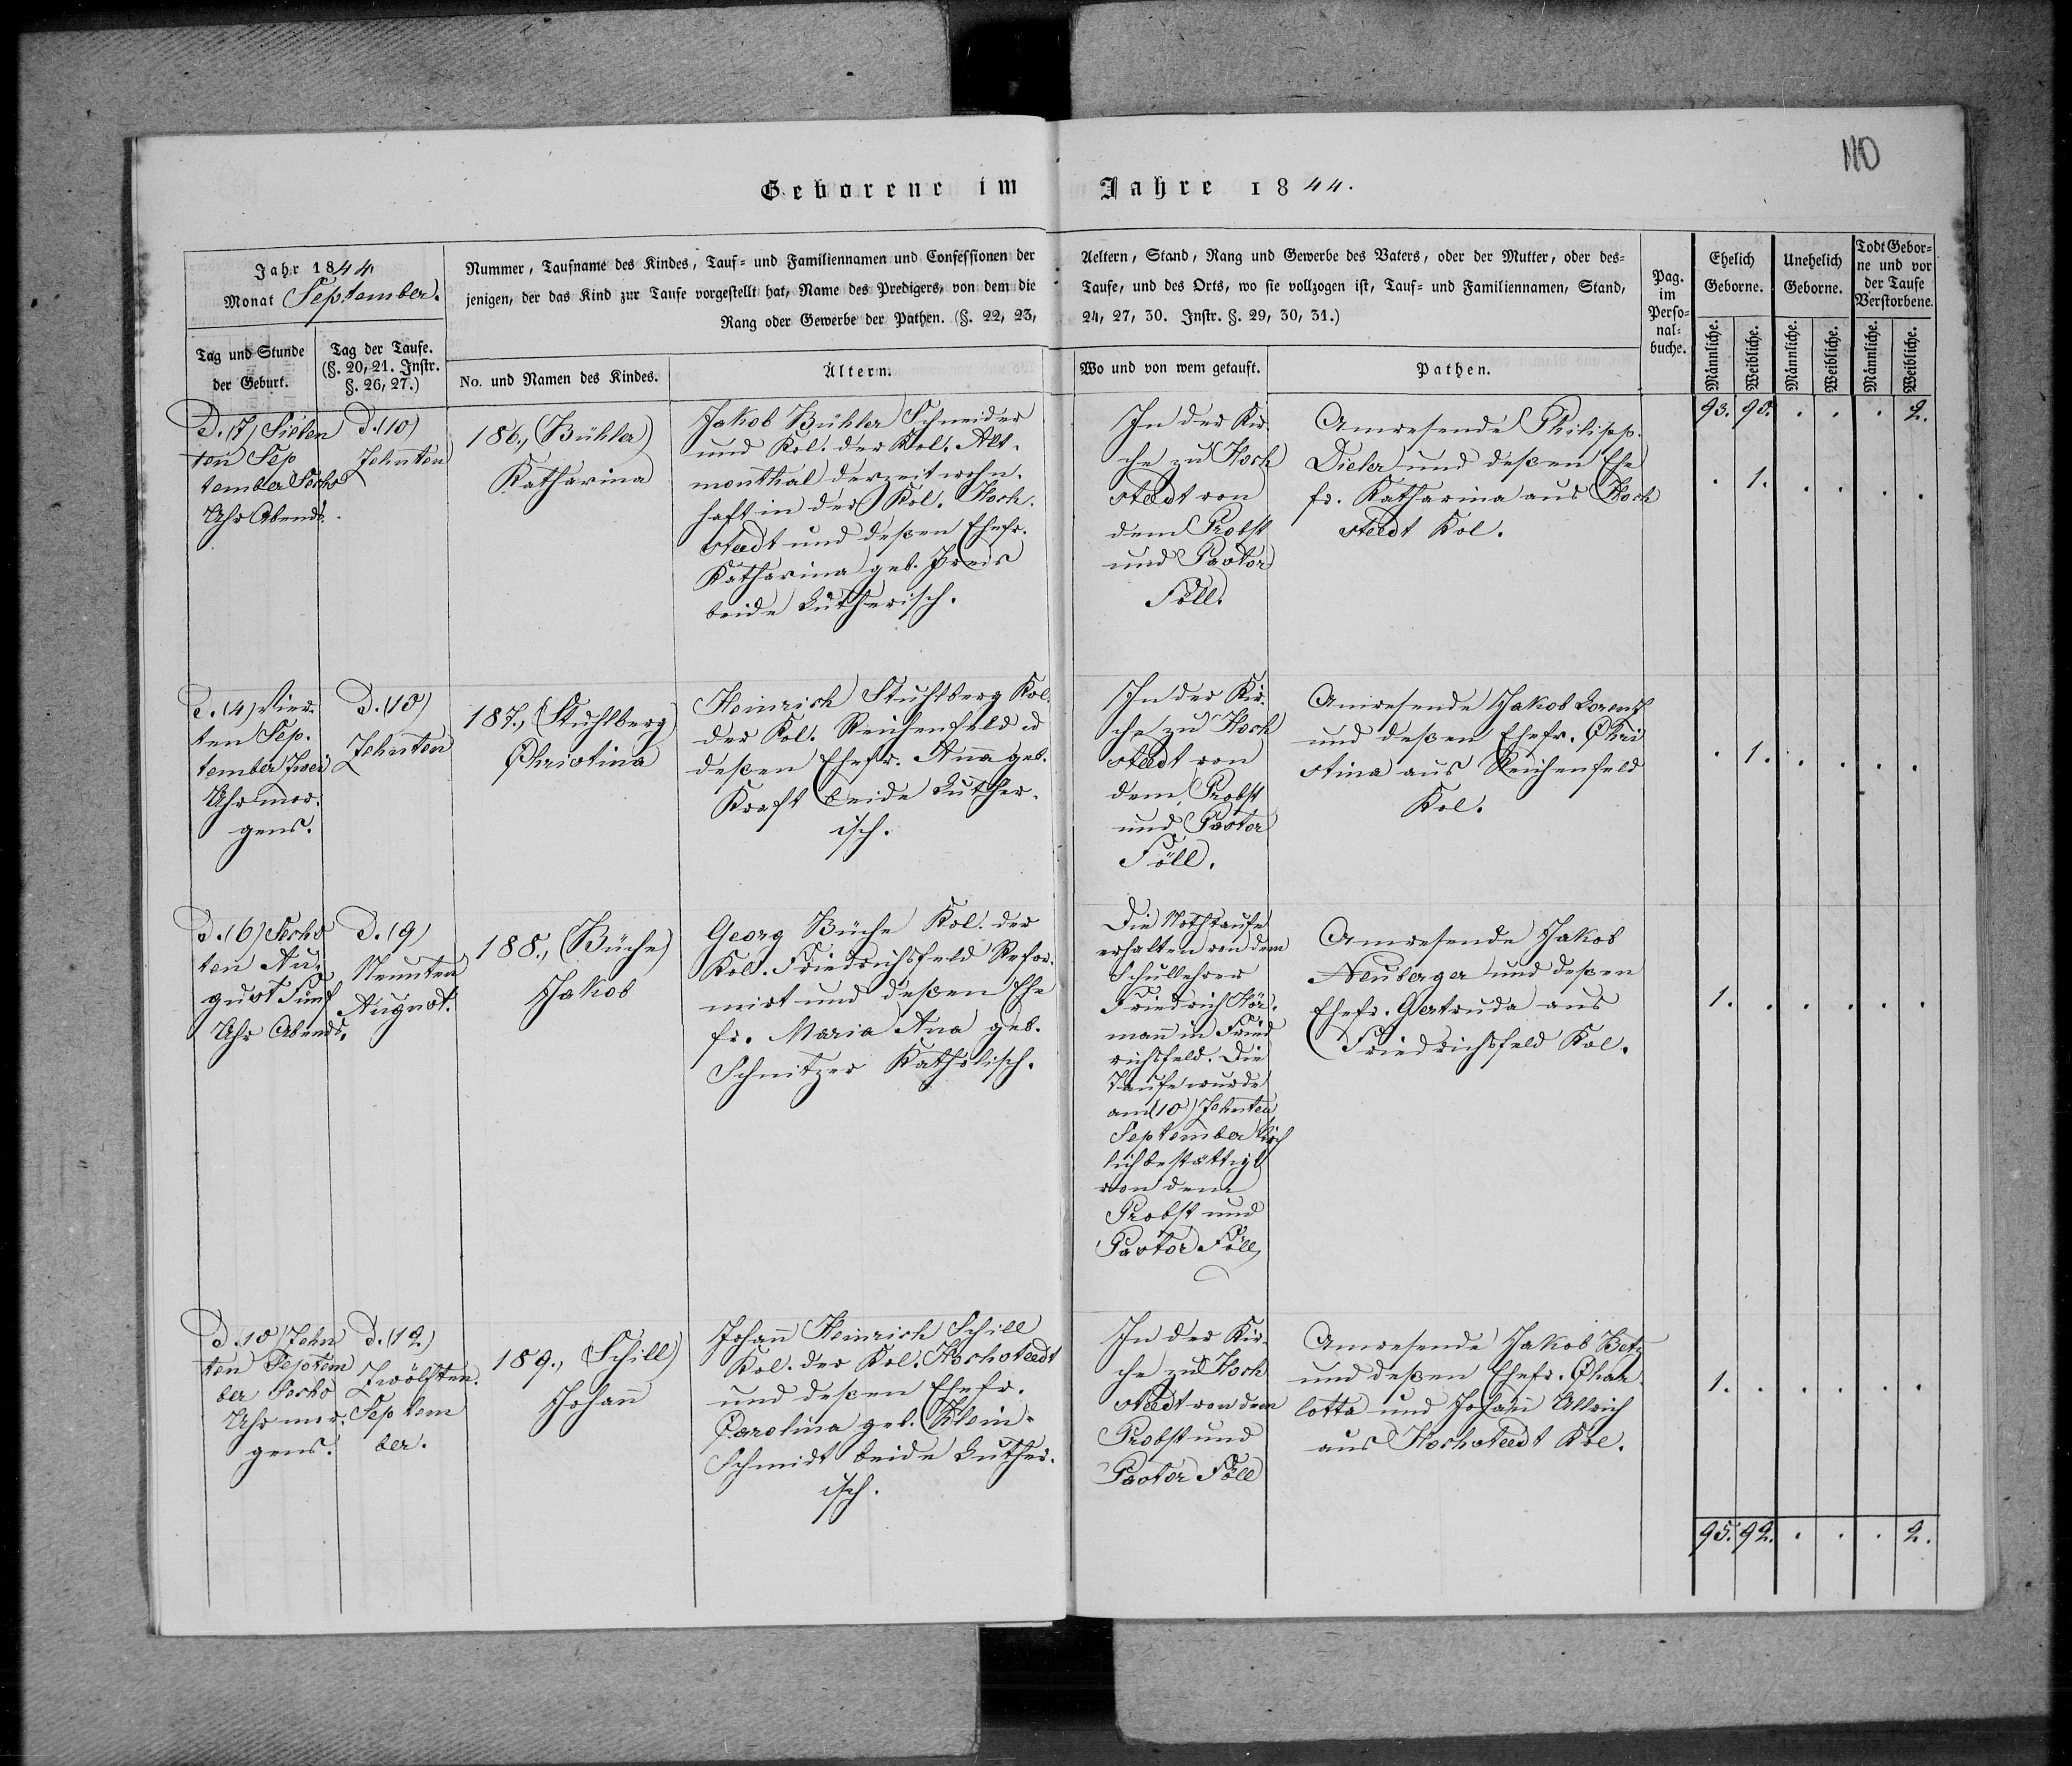 110
Geborene im Jahre 1844.
Jahr 1844.
Monat September.
Tag und Stunde
der Geburt.
Tag der Taufe.
(§. 20, 21. Instr.
§. 26, 27.)
Nummer, Taufname des Kindes, Tauf- und Familiennamen und Confessionen der Aeltern, Stand, Rang und Gewerbe des Vaters, oder der Mutter, oder des-
jenigen, der das Kind zur Taufe vorgestellt hat, Name des Predigers, von dem die Taufe, und des Orts, wo sie vollzogen ist, Tauf- und Familiennamen, Stand,
Rang oder Gewerbe der Pathen. (§. 22, 23, 24, 27, 30. Instr. §. 29, 30, 31.)
No. und Namen des Kindes.
Ältern.
Wo und von wem getauft.
Pathen.
Pag.
im
Perso-
nal-
buche.
Ehelich
Geborne.
Unehelich
Geborne.
Todt Gebor-
ne und vor
der Taufe
Verstorbene.
Männliche.
Weibliche.
Männliche.
Weibliche.
Männliche.
Weibliche.
93. 90. . . . 2.
D. (7) Sieben
ten Sep
tember Sechs
Uhr Abends.
D. (10)
Zehnten
186., (Bühler)
Katharina
Jakob Bühler Schneider
und Kol. der Kol. Alt-
monthal derzeit wohn-
haft in der Kol. Hoch-
staedt und deßen Ehefr.
Katharina geb.
beide Lutherisch.
In der Kir-
che zu Hoch
staedt von
dem Probst
und Pastor
Föll.
Anwesende Philipp
und deßen Ehe
fr. Katharina aus Hoch
staedt Kol.
. 1. . . . .
D. (4) Vier-
ten Sep-
tember Zwei
Uhr mor-
gens.
D. (10)
Zehnten
187., (Stuhlberg)
Christina
Heinrich Stuhlberg Kol.
der Kol. Reichenfeld u
deßen Ehefr. Ana geb.
Kraft beide Luther-
isch.
In der Kir-
che zu Hoch
staedt von
dem Probst
und Pastor
Föll.
Anwesende Jakob Lorentz
und deßen Ehefr. Chri
stina aus Reichenfeld
Kol.
. 1. . . . .
D. (6) Sechs
ten Au-
gust Fünf
Uhr Abends.
D. (9)
Neunten
August.
188., (Büche)
Jakob
Georg Büche Kol. der
Kol. Friedrichsfeld Refor-
mirt und deßen Ehe
fr. Maria Ana geb.
Schnitzer Katholisch.
Die Nothtaufe
erhalten von dem
Schullehrer
Friedrich Hör-
mann in Fried
richsfeld. Die
Taufe wurde
am (10) Zehnten
September kirch
lich bestättigt
von dem
Probst und
Pastor Föll,
Anwesende Jakob
Neuberger und deßen
Ehefr. Gertruda aus
Friedrichsfeld Kol.
1. . . . . .
D. 10) Zehn
ten Septem
ber Sechs
Uhr mor-
gens.
D. (12.)
Zwölften
Septem
ber.
189., (Schill)
Johann
Johann Heinrich Schill
Kol. der Kol. Hochstaedt
und deßen Ehefr.
Carolina geb. Klein-
Schmidt beide Luther-
isch.
In der Kir-
che zu Hoch
staedt von dem
Probst und
Pastor Föll
Anwesende Jakob Betz
und deßen Ehefr. Char
lotta und Johann Ullrich
aus Hochstaedt Kol.
1. . . . . .
95. 92. . . . 2.